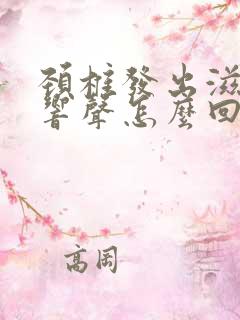 頸柱發出滋
響聲怎麼回
高周